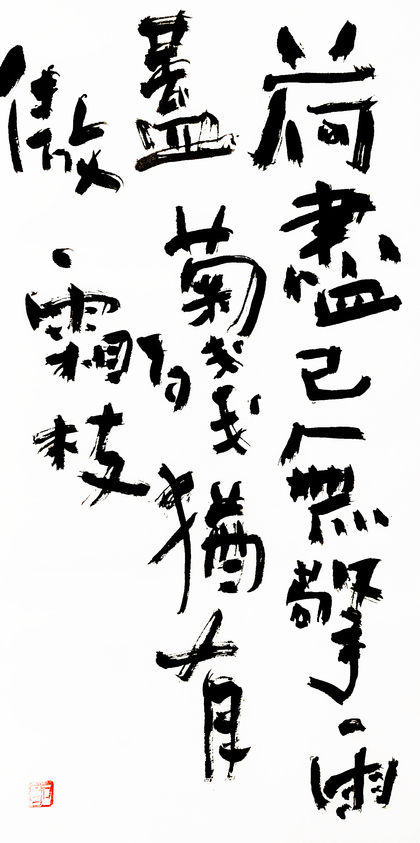 荷盡已無擎雨
蓋菊殘猶有
傲霜枝